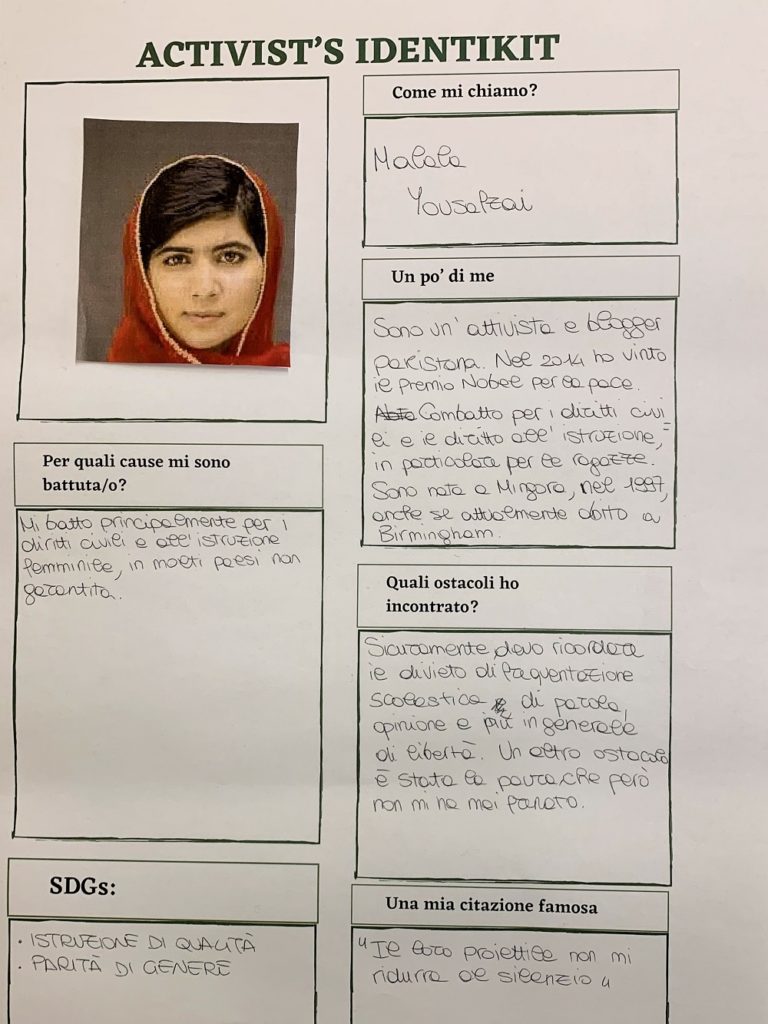 ACTIVIST'S IDENTIKIT
Come mi chiamo?
Malala
Yousafzai
Un po' di me
Sono un'attivista e blogger
pakistana. Nel 2014 ho vinto
il premio Nobel per la pace.
Combatto per i diritti civi
li e il diritto all'istruzione,
in particolare per le ragazze.
Sono nata a Mingora, nel 1997,
anche se attualmente abito a
Birmingham.
Per quali cause mi sono
battuta/o?
Mi batto principalmente per i
diritti civili e all'istruzione
femminile, in molti paesi non
garantita.
Quali ostacoli ho
incontrato?
Sicuramente devo ricordare
il divieto di frequentazione
scolastica di parola,
opinione e più in generale
di libertà. Un altro ostacolo
è stata la paura, che però
non mi ha mai fermato.
SDGs:
• ISTRUZIONE DI QUALITÀ
• PARITÀ DI GENERE
Una mia citazione famosa
"Il loro proiettile non mi
ridurrà al silenzio"